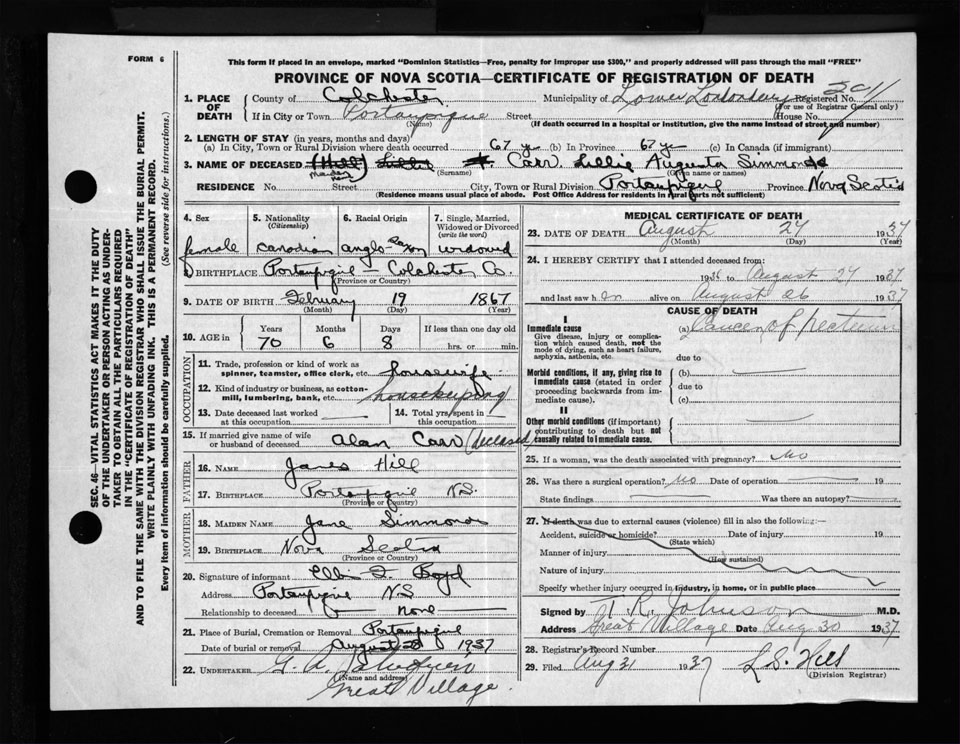 FORM 6
This form if placed in an envelope, marked "Dominion Statistics—Free, penalty for improper use $300," and properly addressed will pass through the mail "FREE"
PROVINCE OF NOVA SCOTIA—CERTIFICATE OF REGISTRATION OF DEATH
SEC. 46—VITAL STATISTICS ACT MAKES IT THE DUTY
OF THE UNDERTAKER OR PERSON ACTING AS UNDER-
TAKER TO OBTAIN ALL THE PARTICULARS REQUIRED
IN THE "CERTIFICATE OF REGISTRATION OF DEATH"
AND TO FILE THE SAME WITH THE DIVISION REGISTRAR WHO SHALL ISSUE THE BURIAL PERMIT.
WRITE PLAINLY WITH UNFADING INK. THIS IS A PERMANENT RECORD.
Every item of information should be carefully supplied. (See reverse side for instructions.)
1. PLACE OF DEATH
County of Colchester Municipality of Lower Registered No.
(For use of Registrar General only)
If in City or Town Portaupique Street House No.
(Name)
(If death occurred in a hospital or institution, give the name instead of street and number)
2. LENGTH OF STAY (in years, months and days)
(a) In City, Town or Rural Division where death occurred 67 yr (b) In Province 67 yr (c) In Canada (if immigrant)
3. NAME OF DECEASED (Hill) Carr. Lillie Augusta Simmonds
(Surname) (Given name or names)
RESIDENCE No. Street City, Town or Rural Division Portaupique Province Nova Scotia
(Residence means usual place of abode. Post Office Address for residents in rural parts not sufficient)
4. Sex female
5. Nationality (Citizenship) Canadian
6. Racial Origin anglo-saxon
7. Single, Married, Widowed or Divorced (write the word) widowed
8. BIRTHPLACE Portaupique — Colchester Co.
(Province or Country)
9. DATE OF BIRTH February 19 1867
(Month) (Day) (Year)
10. AGE in Years 70 Months 6 Days 8 If less than one day old hrs. or min.
OCCUPATION
11. Trade, profession or kind of work as spinner, teamster, office clerk, etc. housewife
12. Kind of industry or business, as cotton-mill, lumbering, bank, etc. housekeeping
13. Date deceased last worked at this occupation
14. Total yrs. spent in this occupation
15. If married give name of wife or husband of deceased Alan Carr (deceased)
FATHER
16. NAME James Hill
17. BIRTHPLACE Portaupique N.S.
(Province or Country)
MOTHER
18. MAIDEN NAME Jane Simmonds
19. BIRTHPLACE Nova Scotia
(Province or Country)
20. Signature of informant Boyd
Address Portaupique NS
Relationship to deceased none
21. Place of Burial, Cremation or Removal Portaupique
Date of burial or removal August 28 1937
22. UNDERTAKER G. A.
(Name and address)
Great Village.
MEDICAL CERTIFICATE OF DEATH
23. DATE OF DEATH August 27 1937
(Month) (Day) (Year)
24. I HEREBY CERTIFY that I attended deceased from:
1936 to August 27 1937
and last saw her alive on August 26 1937
CAUSE OF DEATH
I
Immediate cause
Give disease, injury or complication which caused death, not the mode of dying, such as heart failure, asphyxia, asthenia, etc.
(a) Cancer of rectum
due to
Morbid conditions, if any, giving rise to immediate cause (stated in order proceeding backwards from immediate cause).
(b)
due to
(c)
II
Other morbid conditions (if important) contributing to death but not causally related to immediate cause.
25. If a woman, was the death associated with pregnancy? No
26. Was there a surgical operation? No Date of operation 19
State findings Was there an autopsy?
27. If death was due to external causes (violence) fill in also the following:—
Accident, suicide or homicide? Date of injury 19
(State which)
Manner of injury
(How sustained)
Nature of injury
Specify whether injury occurred in industry, in home, or in public place
Signed by T. R. Johnson M.D.
Address Great Village Date Aug 30 1937
28. Registrar's Record Number
29. Filed Aug 31 1937 L. S. Hill
(Division Registrar)